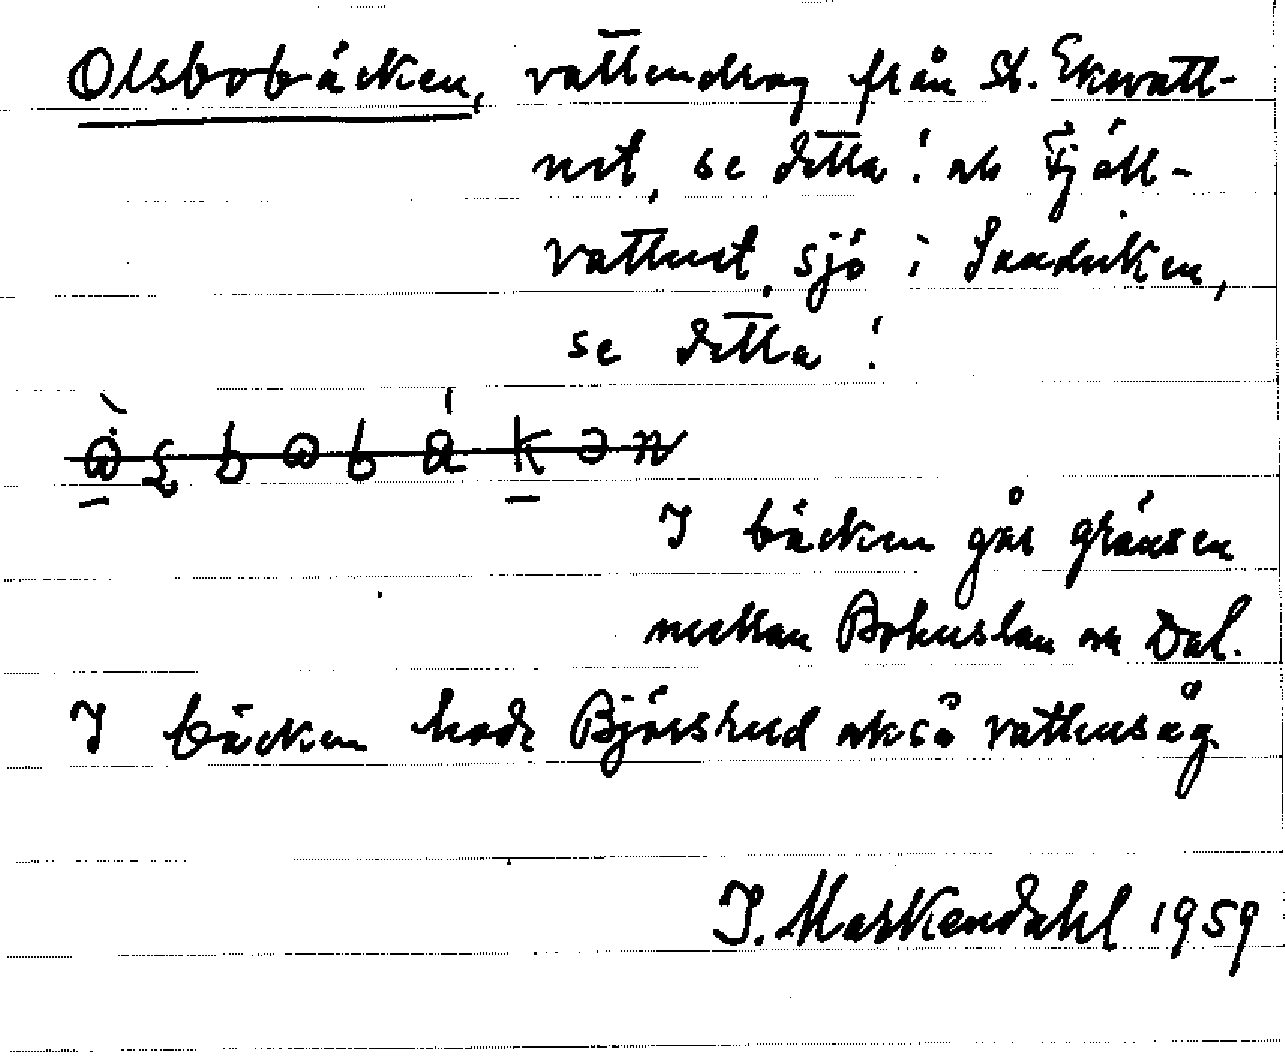 Olsbobäcken, vattendrag från St. Ekvatt-
net, se detta! ob Fjäll-
vattnet, sjö i Sanduiken,
se detta!
I bäcken går gränsen
mellan Bohuslän o Dal.
I bäcken hade Björsrud också vattensåg.
I. Markendahl 1959